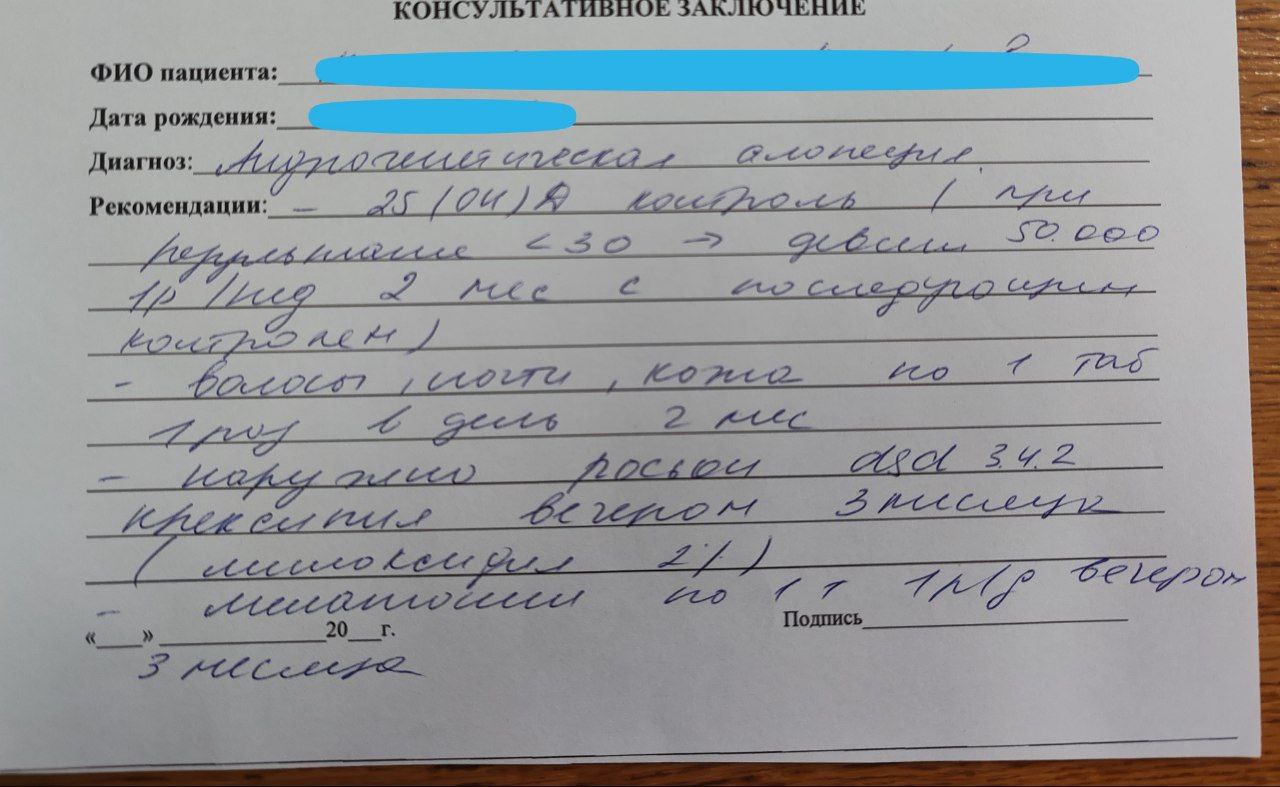 КОНСУЛЬТАТИВНОЕ ЗАКЛЮЧЕНИЕ
ФИО пациента:
Дата рождения:
Диагноз: Андрогенетическая алопеция.
Рекомендации: - 25(ОН)Д контроль (при
результате <30 → девит 50.000
1р/нед 2 мес с последующим
контролем)
- волосы, ногти, кожа по 1 таб
1 раз в день 2 мес
- наружно лосьон dsd 3.4.2
вечером 3 месяца
(миноксидил 2%)
- мелатонин по 1 т 1р/д вечером
«___» ____________20___г. Подпись
3 месяца